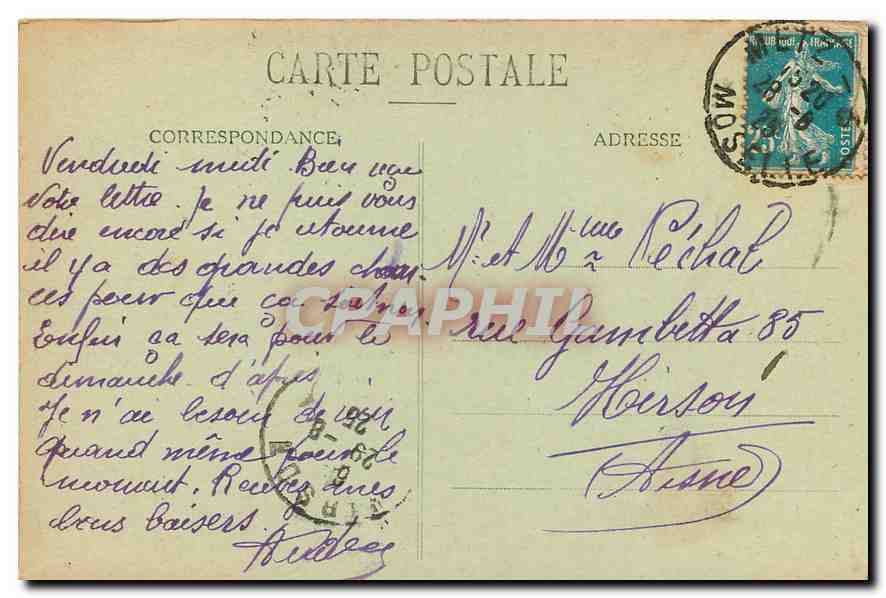 CARTE POSTALE
CORRESPONDANCE
ADRESSE
Vendredi midi Bien reçu
Votre lettre. Je ne puis vous
dire encore si je retourne
il y a des grandes chan-
ces pour que ça soit non
Enfin ça sera pour le
dimanche d'après
Je n'ai besoin de rien
quand même pour le
moment. Recevez mes
bons baisers.
Mr et Mme Péchal
rue Gambetta 85
Hirson
(Aisne)
METZ
MOSELLE
28 -6
HIRSON
29 -6
25
POSTES
CPAPHIL